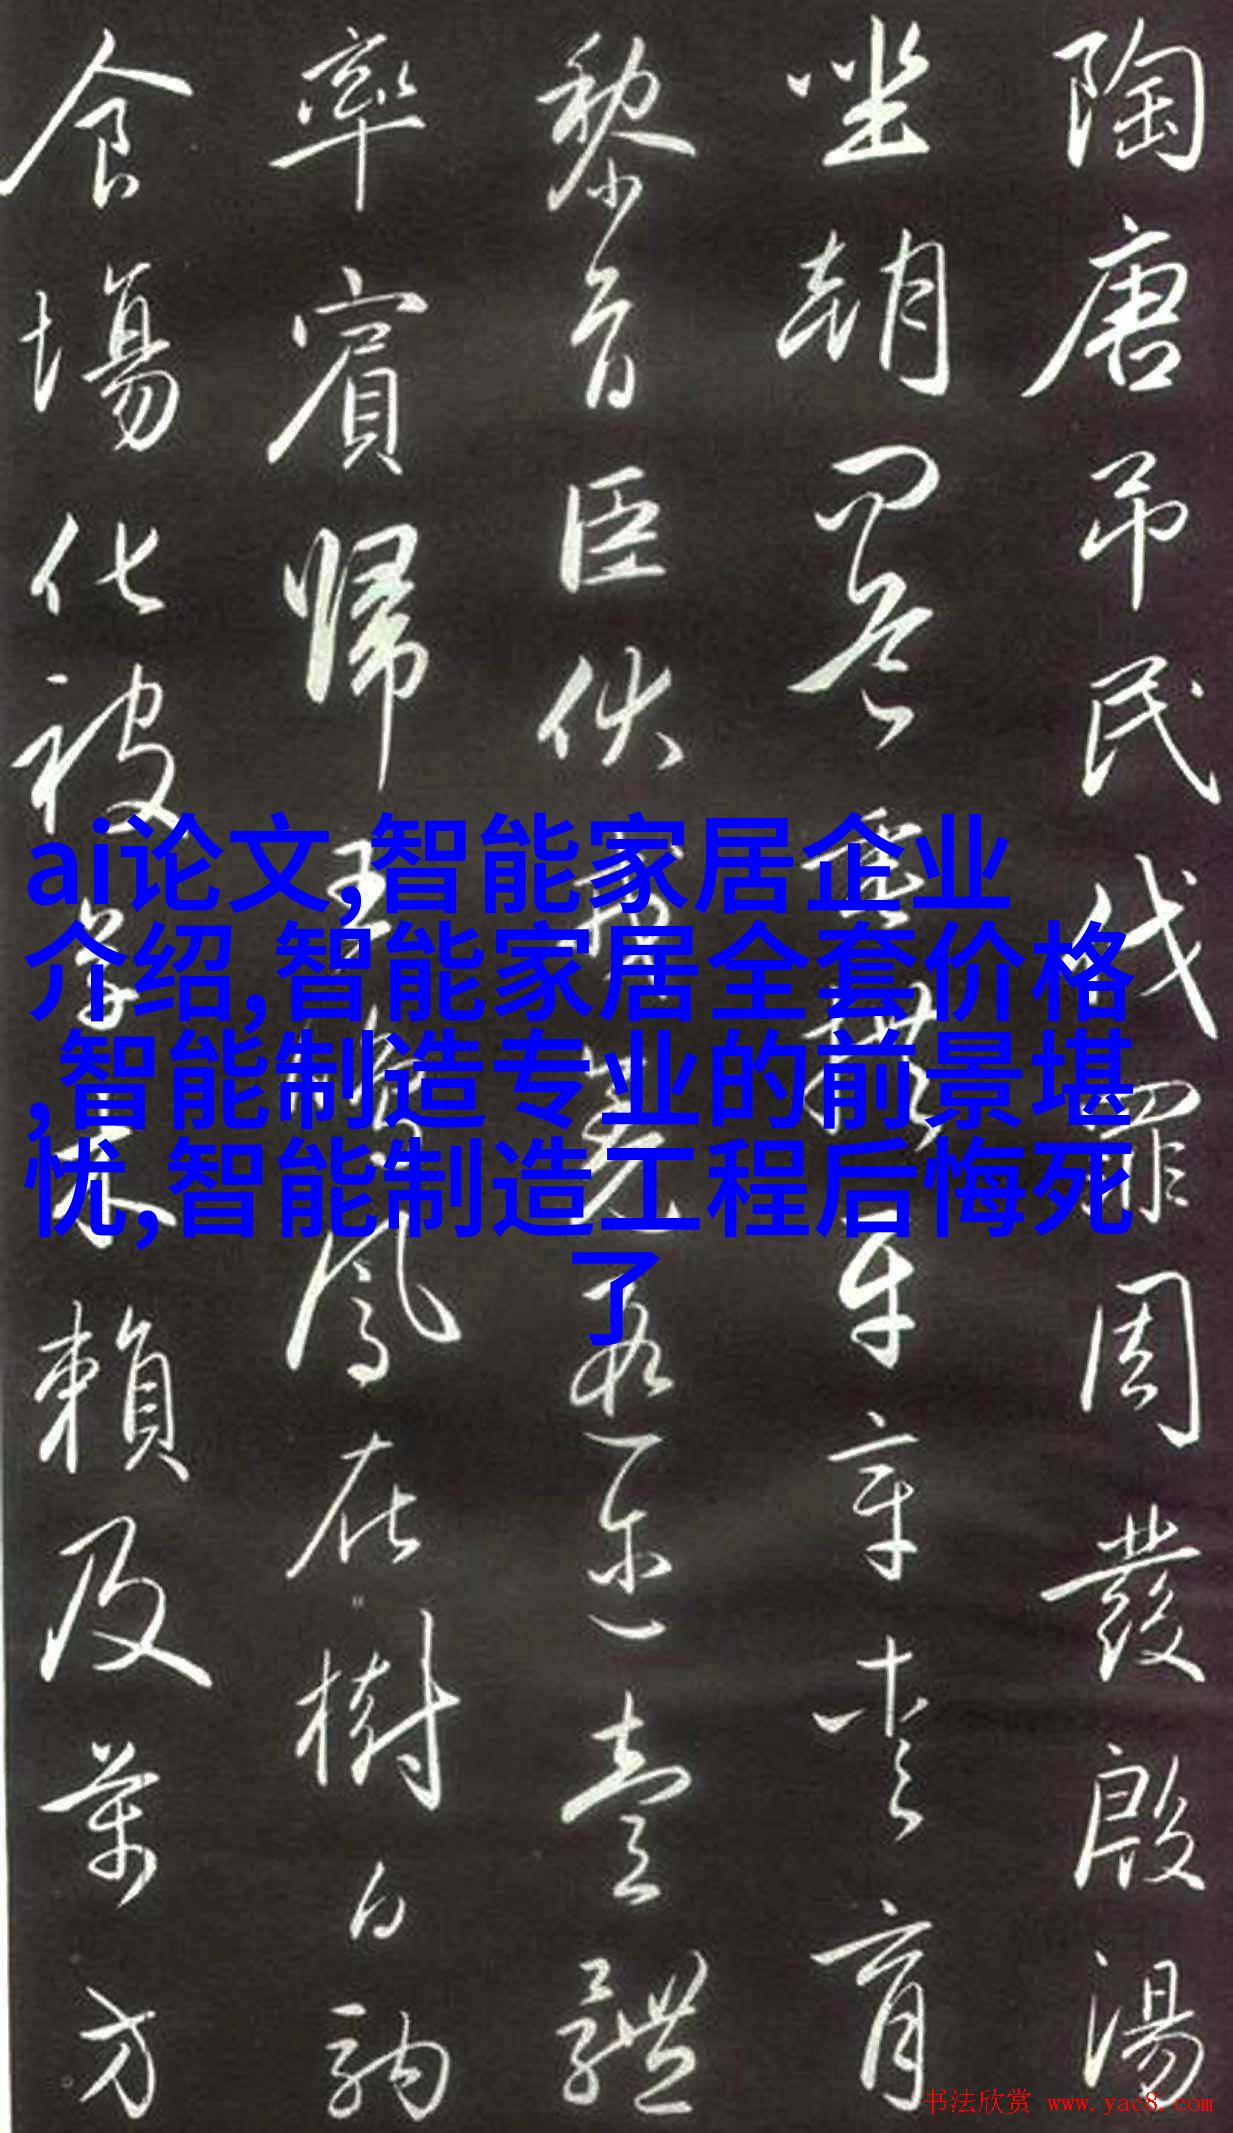 陶唐吊民伐罪周發殷湯
坐朝問道垂拱平章愛育
黎首臣伏戎羌遐邇壹體
率賓歸王鳴鳳在樹白駒
食場化被草木賴及萬方
ai论文,智能家居企业
介绍,智能家居全套价格
,智能制造专业的前景堪
忧,智能制造工程后悔死
了
书法欣赏 www.yac8.com